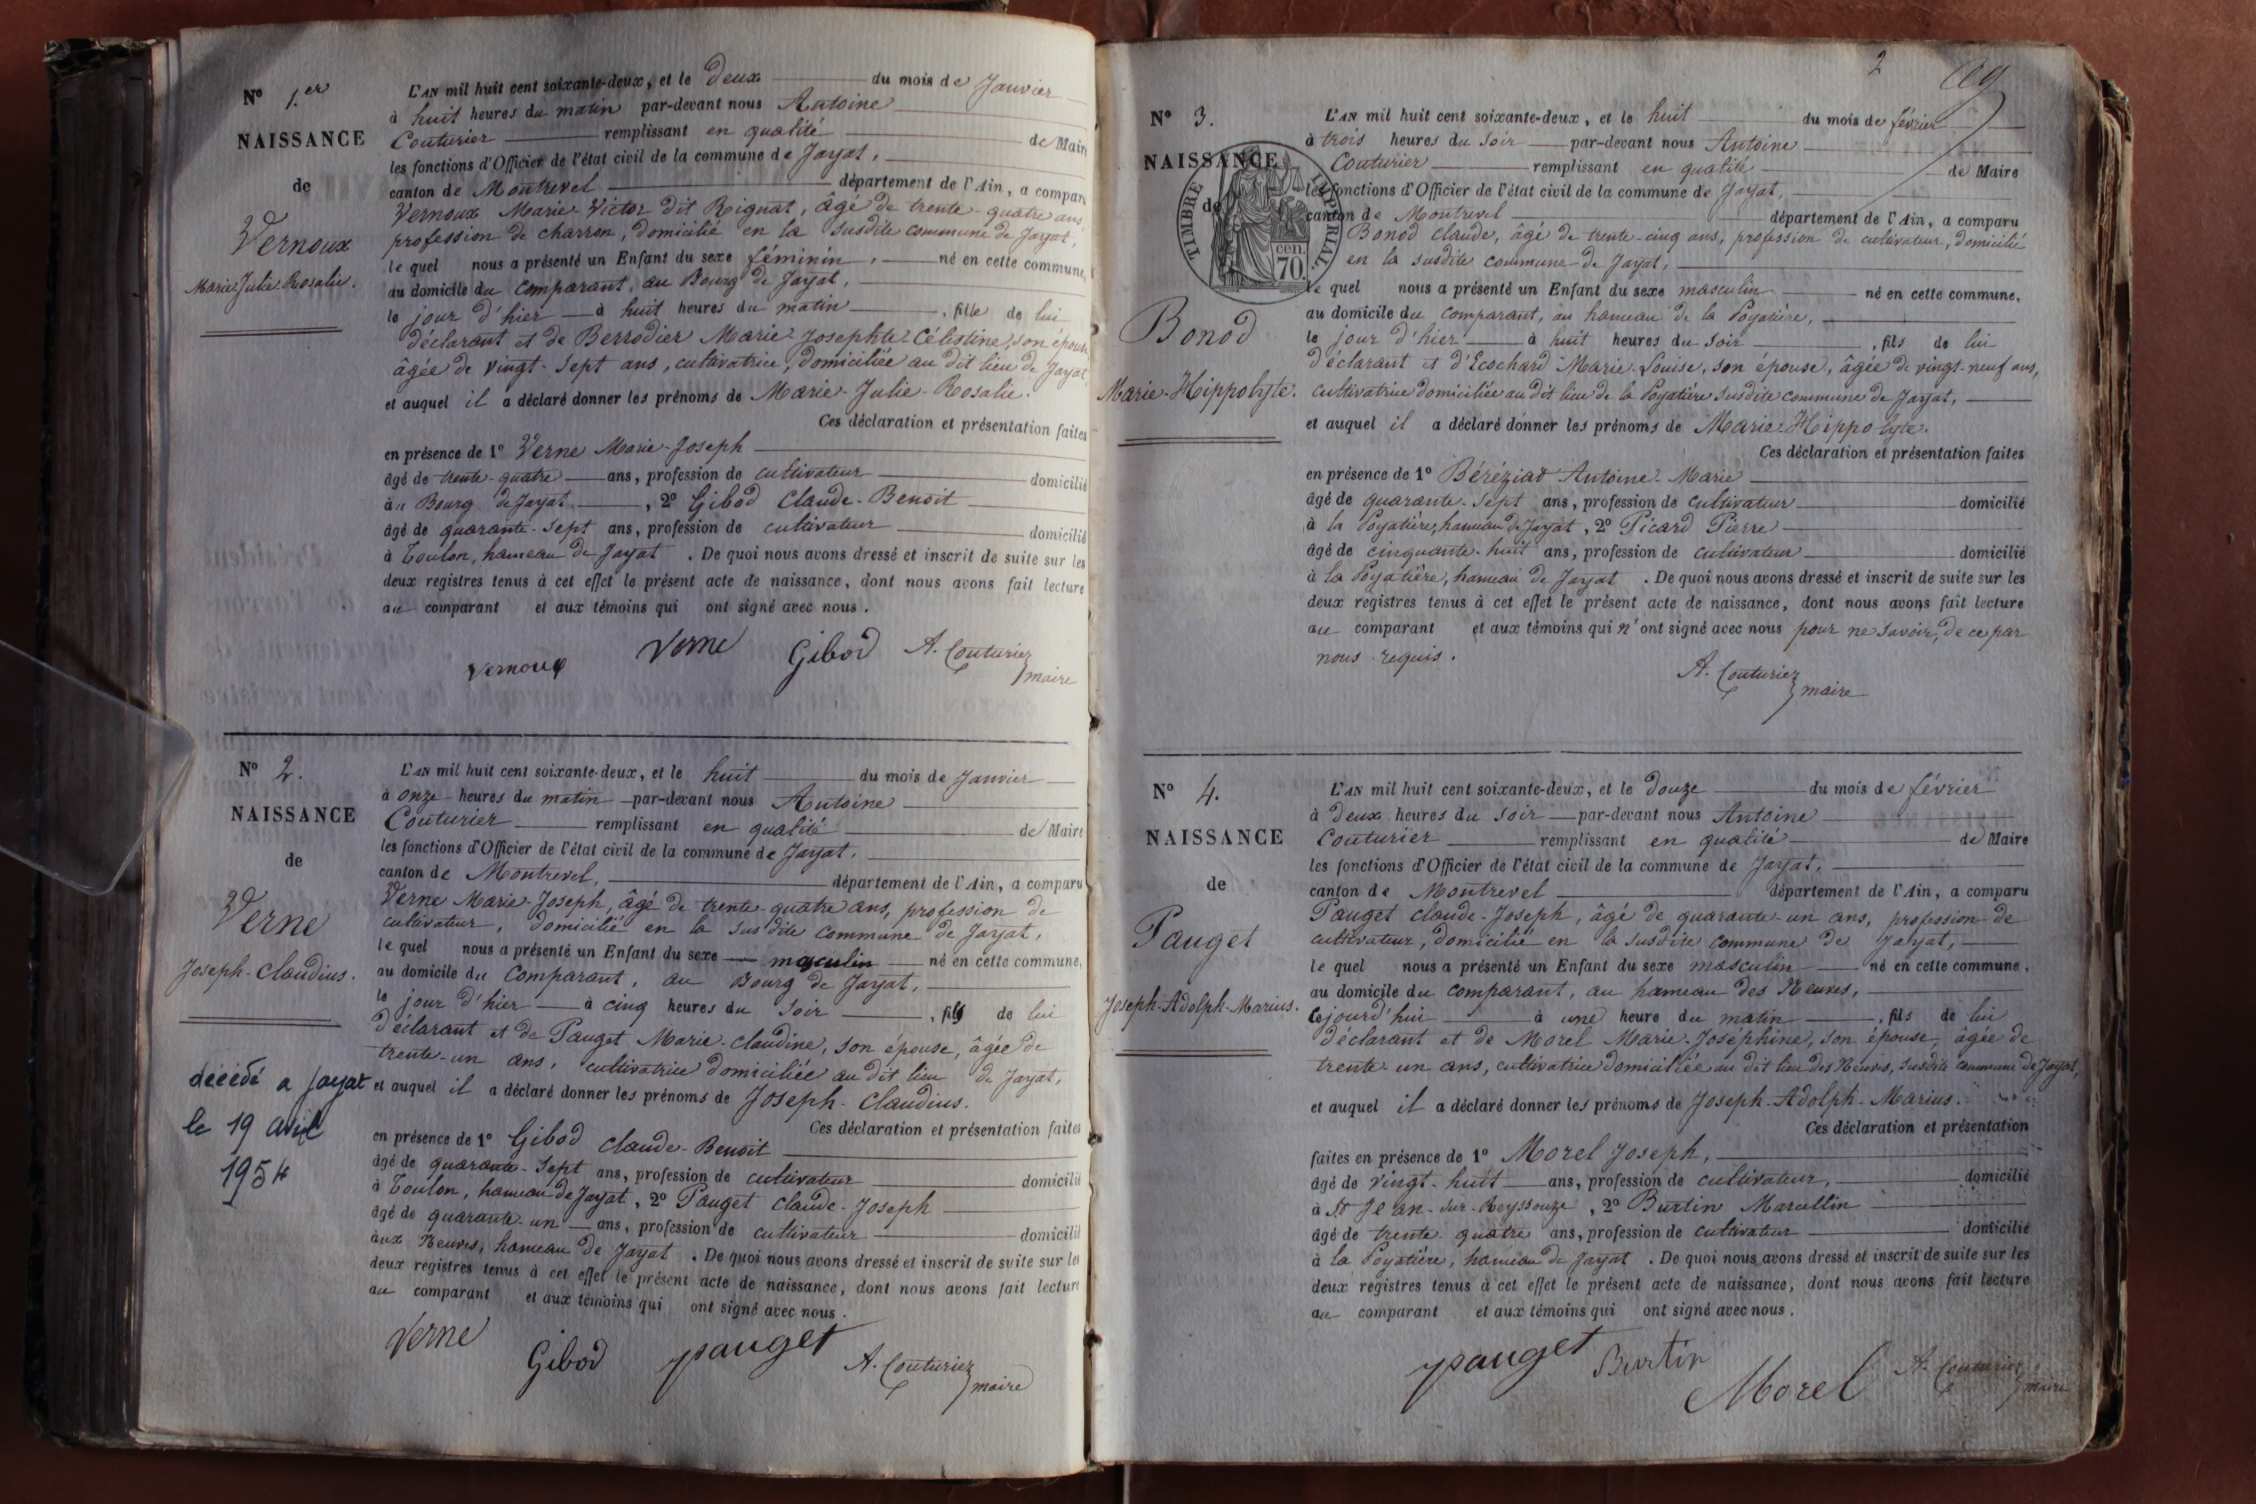 Nº 1.er
NAISSANCE
de
Vernoux
Marie Julie Rosalie.
L'AN mil huit cent soixante-deux, et le deux du mois de Janvier
à huit heures du matin par-devant nous Antoine
Couturier remplissant en qualité de Maire
les fonctions d'Officier de l'état civil de la commune de Jayat,
canton de Montrevel département de l'Ain, a comparu
Vernoux Marie-Victor dit Rignat, âgé de trente-quatre ans
profession de charron, domicilié en la susdite commune de Jayat,
le quel nous a présenté un Enfant du sexe féminin, né en cette commune,
au domicile du comparant, au Bourg de Jayat,
le jour d'hier à huit heures du matin, fille de lui
déclarant et de Berrodier Marie-Josephte-Célestine, son épouse,
âgée de vingt-sept ans, cultivatrice, domiciliée au dit lieu de Jayat
et auquel il a déclaré donner les prénoms de Marie-Julie-Rosalie.
Ces déclaration et présentation faites
en présence de 1º Verne Marie-Joseph
âgé de trente-quatre ans, profession de cultivateur domicilié
au Bourg de Jayat, 2º Gibod Claude-Benoit
âgé de quarante-sept ans, profession de cultivateur domicilié
à Toulon, hameau de Jayat. De quoi nous avons dressé et inscrit de suite sur les
deux registres tenus à cet effet le présent acte de naissance, dont nous avons fait lecture
au comparant et aux témoins qui ont signé avec nous.
Vernoux Verne Gibod A. Couturier
maire
Nº 2.
NAISSANCE
de
Verne
Joseph-Claudius.
décédé a Jayat
le 19 avril
1954
L'AN mil huit cent soixante-deux, et le huit du mois de Janvier
à onze heures du matin par-devant nous Antoine
Couturier remplissant en qualité de Maire
les fonctions d'Officier de l'état civil de la commune de Jayat,
canton de Montrevel, département de l'Ain, a comparu
Verne Marie-Joseph, âgé de trente-quatre ans, profession de
cultivateur, domicilié en la susdite commune de Jayat,
le quel nous a présenté un Enfant du sexe masculin né en cette commune,
au domicile du comparant, au Bourg de Jayat,
le jour d'hier à cinq heures du soir, fils de lui
déclarant et de Pauget Marie-Claudine, son épouse, âgée de
trente-un ans, cultivatrice domiciliée au dit lieu de Jayat,
et auquel il a déclaré donner les prénoms de Joseph-Claudius.
Ces déclaration et présentation faites
en présence de 1º Gibod Claude-Benoit
âgé de quarante-sept ans, profession de cultivateur domicilié
à Toulon, hameau de Jayat, 2º Pauget Claude-Joseph
âgé de quarante-un ans, profession de cultivateur domicilié
aux Neuves, hameau de Jayat. De quoi nous avons dressé et inscrit de suite sur les
deux registres tenus à cet effet le présent acte de naissance, dont nous avons fait lecture
au comparant et aux témoins qui ont signé avec nous.
Verne Gibod pauget A. Couturier
maire
2
Nº 3.
NAISSANCE
de
TIMBRE IMPERIAL.
70 cen.
Bonod
Marie-Hippolyte.
L'AN mil huit cent soixante-deux, et le huit du mois de février
à trois heures du soir par-devant nous Antoine
Couturier remplissant en qualité de Maire
les fonctions d'Officier de l'état civil de la commune de Jayat,
canton de Montrevel département de l'Ain, a comparu
Bonod Claude, âgé de trente-cinq ans, profession de cultivateur, domicilié
en la susdite commune de Jayat,
le quel nous a présenté un Enfant du sexe masculin né en cette commune,
au domicile du comparant, au hameau de la Poyatière,
le jour d'hier à huit heures du soir, fils de lui
déclarant et d'Ecochard Marie-Louise, son épouse, âgée de vingt-neuf ans,
cultivatrice domiciliée au dit lieu de la Poyatière susdite commune de Jayat,
et auquel il a déclaré donner les prénoms de Marie-Hippolyte.
Ces déclaration et présentation faites
en présence de 1º Béréziat Antoine-Marie
âgé de quarante-sept ans, profession de cultivateur domicilié
à la Poyatière, hameau de Jayat, 2º Picard Pierre
âgé de cinquante-huit ans, profession de cultivateur domicilié
à la Poyatière, hameau de Jayat. De quoi nous avons dressé et inscrit de suite sur les
deux registres tenus à cet effet le présent acte de naissance, dont nous avons fait lecture
au comparant et aux témoins qui n'ont signé avec nous pour ne savoir, de ce par
nous requis.
A. Couturier
maire
Nº 4.
NAISSANCE
de
Pauget
Joseph-Adolph-Marius.
L'AN mil huit cent soixante-deux, et le douze du mois de février
à deux heures du soir par-devant nous Antoine
Couturier remplissant en qualité de Maire
les fonctions d'Officier de l'état civil de la commune de Jayat,
canton de Montrevel département de l'Ain, a comparu
Pauget Claude-Joseph, âgé de quarante-un ans, profession de
cultivateur, domicilié en la susdite commune de Jayat,
le quel nous a présenté un Enfant du sexe masculin né en cette commune,
au domicile du comparant, au hameau des Neuves,
cejourd'hui à une heure du matin, fils de lui
déclarant et de Morel Marie-Joséphine, son épouse, âgée de
trente-un ans, cultivatrice domiciliée au dit lieu des Neuves, susdite commune de Jayat,
et auquel il a déclaré donner les prénoms de Joseph-Adolph-Marius.
Ces déclaration et présentation
faites en présence de 1º Morel Joseph,
âgé de vingt-huit ans, profession de cultivateur, domicilié
à St Jean-sur-Reyssouze, 2º Burtin Marcellin
âgé de trente quatre ans, profession de cultivateur domicilié
à la Poyatière, hameau de Jayat. De quoi nous avons dressé et inscrit de suite sur les
deux registres tenus à cet effet le présent acte de naissance, dont nous avons fait lecture
au comparant et aux témoins qui ont signé avec nous.
pauget Burtin Morel A. Couturier
maire